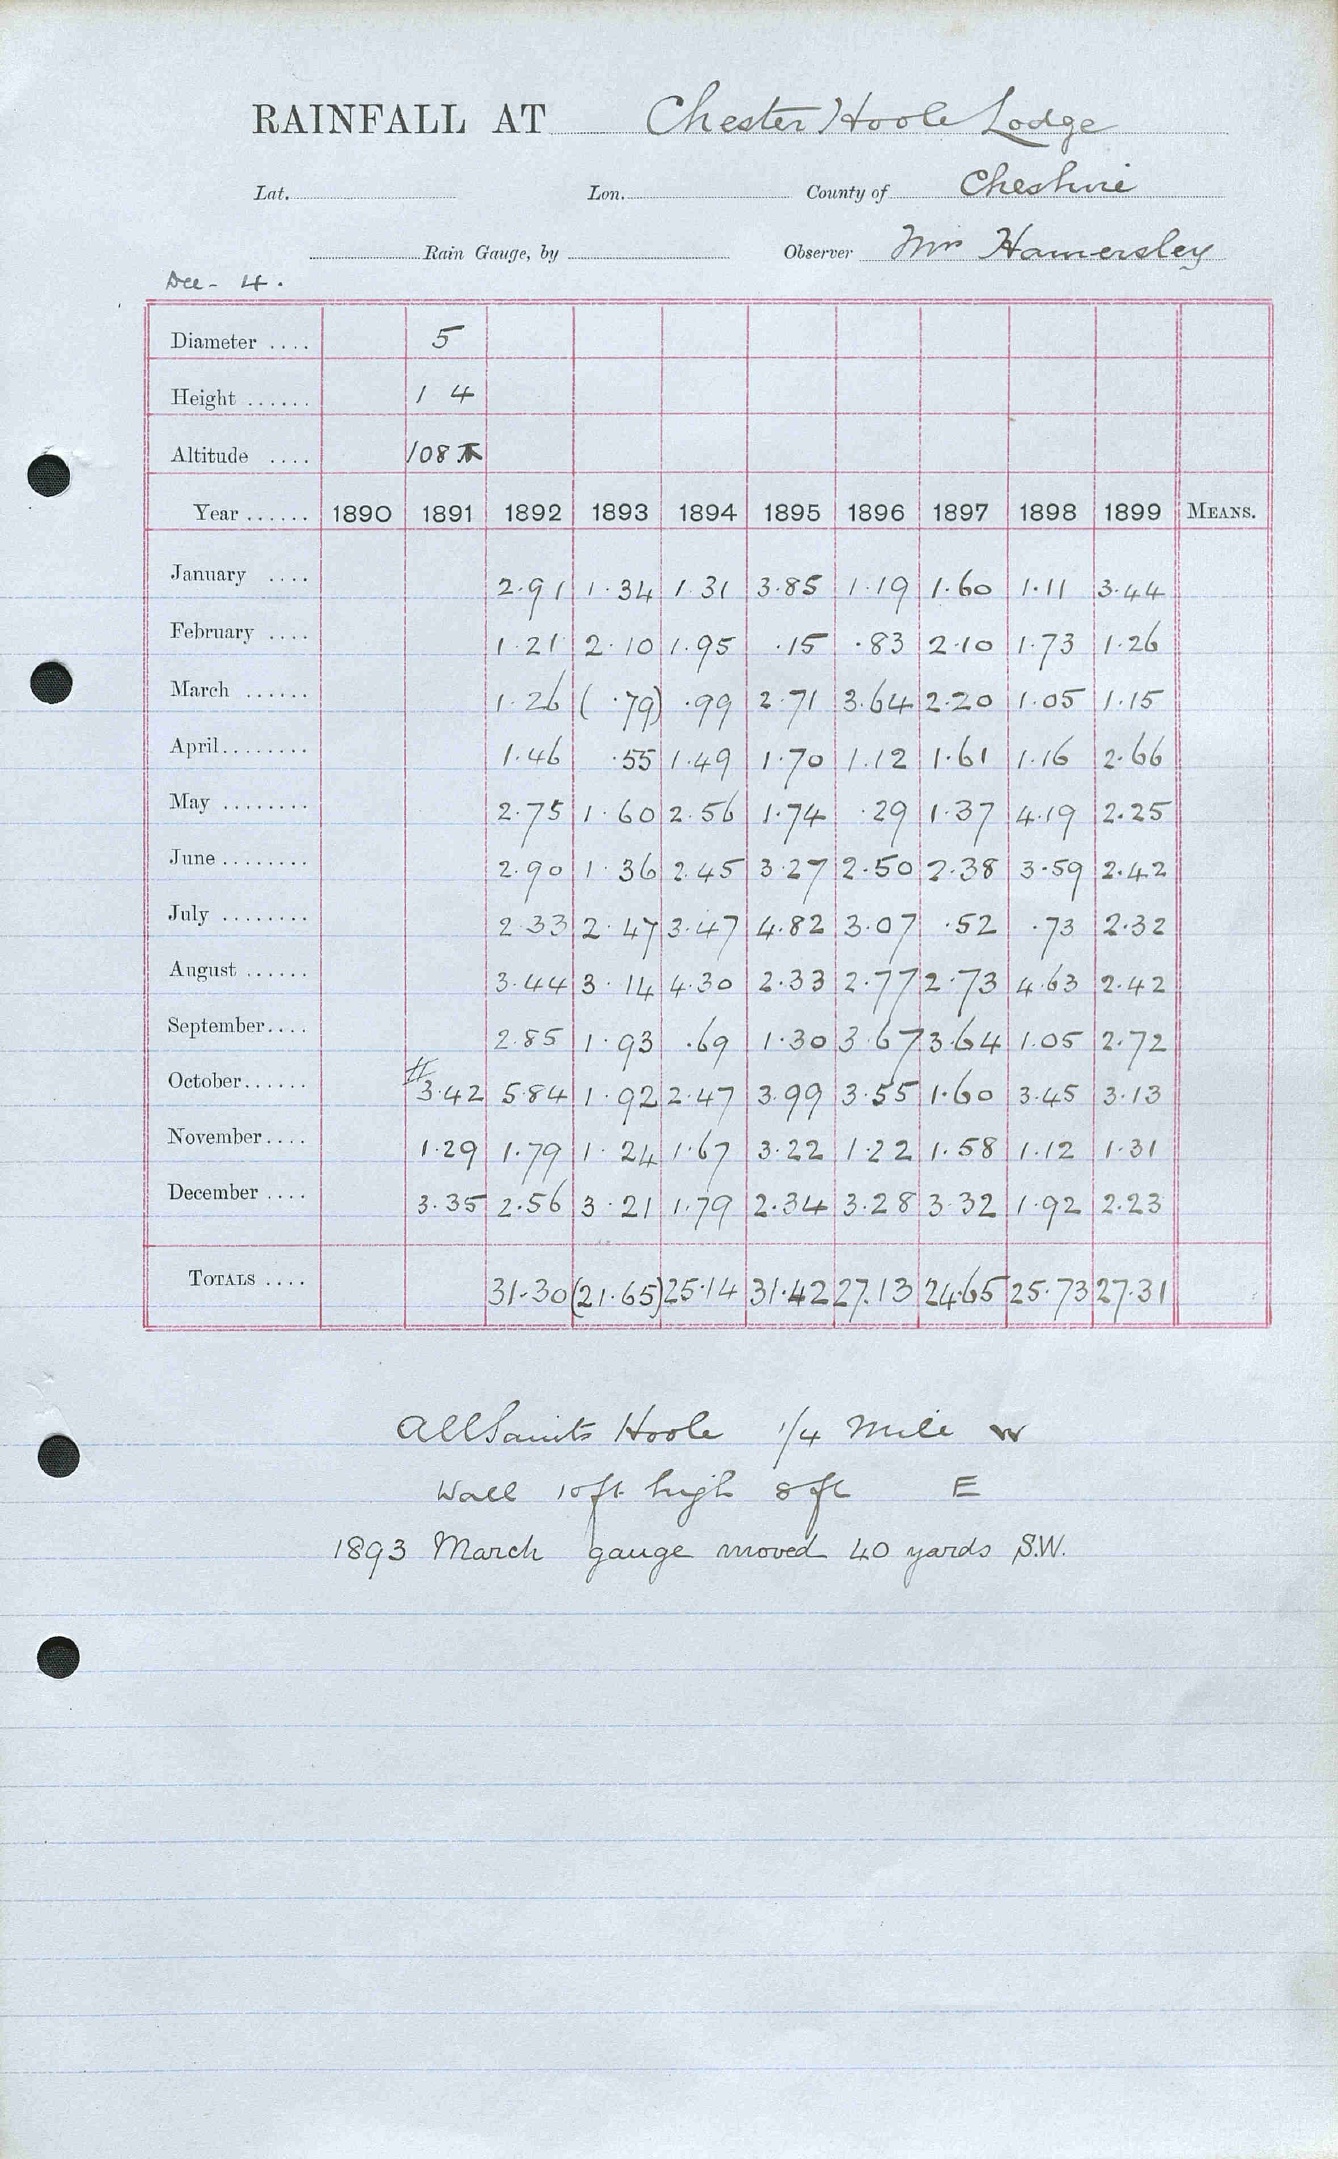 RAINFALL AT Chester Hoole Lodge
Lat. Lon. County of Cheshire
Rain Gauge, by Observer Mrs Hamersley
Dec - 4.
Diameter .... 5
Height ...... 1 4
Altitude .... 108
Year ...... 1890 1891 1892 1893 1894 1895 1896 1897 1898 1899 MEANS.
January .... 2.91 1.34 1.31 3.85 1.19 1.60 1.11 3.44
February .... 1.21 2.10 1.95 .15 .83 2.10 1.73 1.26
March ...... 1.26 (.79) .99 2.71 3.64 2.20 1.05 1.15
April........ 1.46 .55 1.49 1.70 1.12 1.61 1.16 2.66
May ........ 2.75 1.60 2.56 1.74 .29 1.37 4.19 2.25
June ........ 2.90 1.36 2.45 3.27 2.50 2.38 3.59 2.42
July ........ 2.33 2.47 3.47 4.82 3.07 .52 .73 2.32
August ...... 3.44 3.14 4.30 2.33 2.77 2.73 4.63 2.42
September.... 2.85 1.93 .69 1.30 3.67 3.64 1.05 2.72
October...... #3.42 5.84 1.92 2.47 3.99 3.55 1.60 3.45 3.13
November.... 1.29 1.79 1.24 1.67 3.22 1.22 1.58 1.12 1.31
December .... 3.35 2.56 3.21 1.79 2.34 3.28 3.32 1.92 2.23
TOTALS .... 31.30 (21.65) 25.14 31.42 27.13 24.65 25.73 27.31
All Saints Hoole 1/4 Mile W
Wall 10ft high 8ft E
1893 March gauge moved 40 yards S.W.